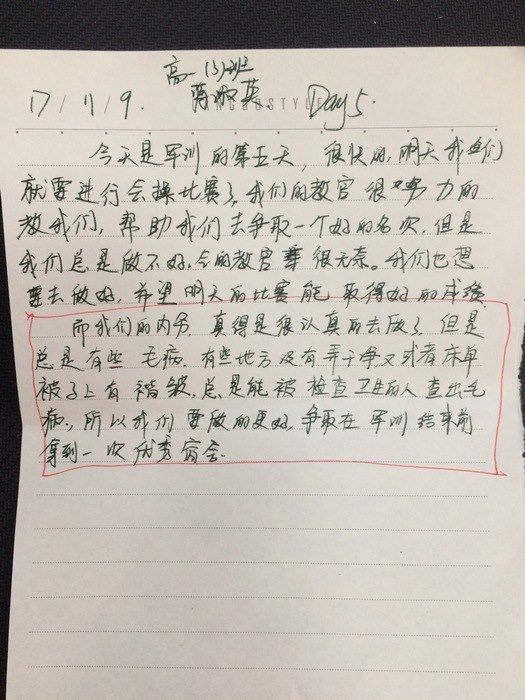 高一(3)班
17/11/9. 蒋淑英. Day5.
今天是军训的第五天,很快的,明天我们
就要进行会操比赛了,我们的教官很努力的
教我们,帮助我们去争取一个好的名次,但是
我们总是做不好,令的教官很无奈。我们也想
要去做好,希望明天的比赛能取得好的成绩.
而我们的内务,真得是很认真的去做了,但是
总是有些毛病,有些地方没有弄干净又或者床单
被子上有褶皱,总是能被检查卫生的人查出毛
病,所以我们要做的更好,争取在军训结束前
得到一次优秀宿舍.